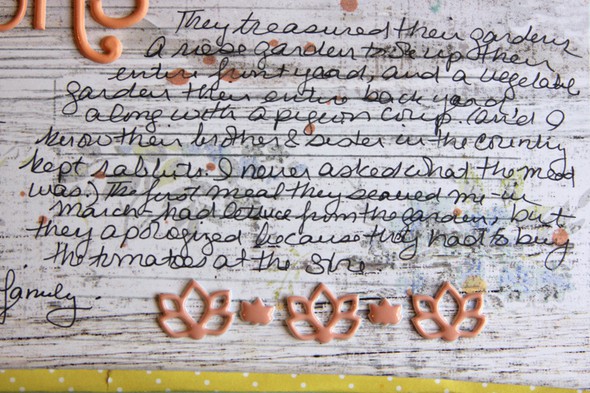 They treasured their gardens
A rose garden took up their
entire front yard, and a vegetable
garden their entire back yard
along with a pigeon coup. (and I
know their brother & sister in the country
kept rabbits. I never asked what the meat
was.) The first meal they served me in
March had lettuce from the garden, but
they apologized because they had to buy
the tomatoes at the store.
family.